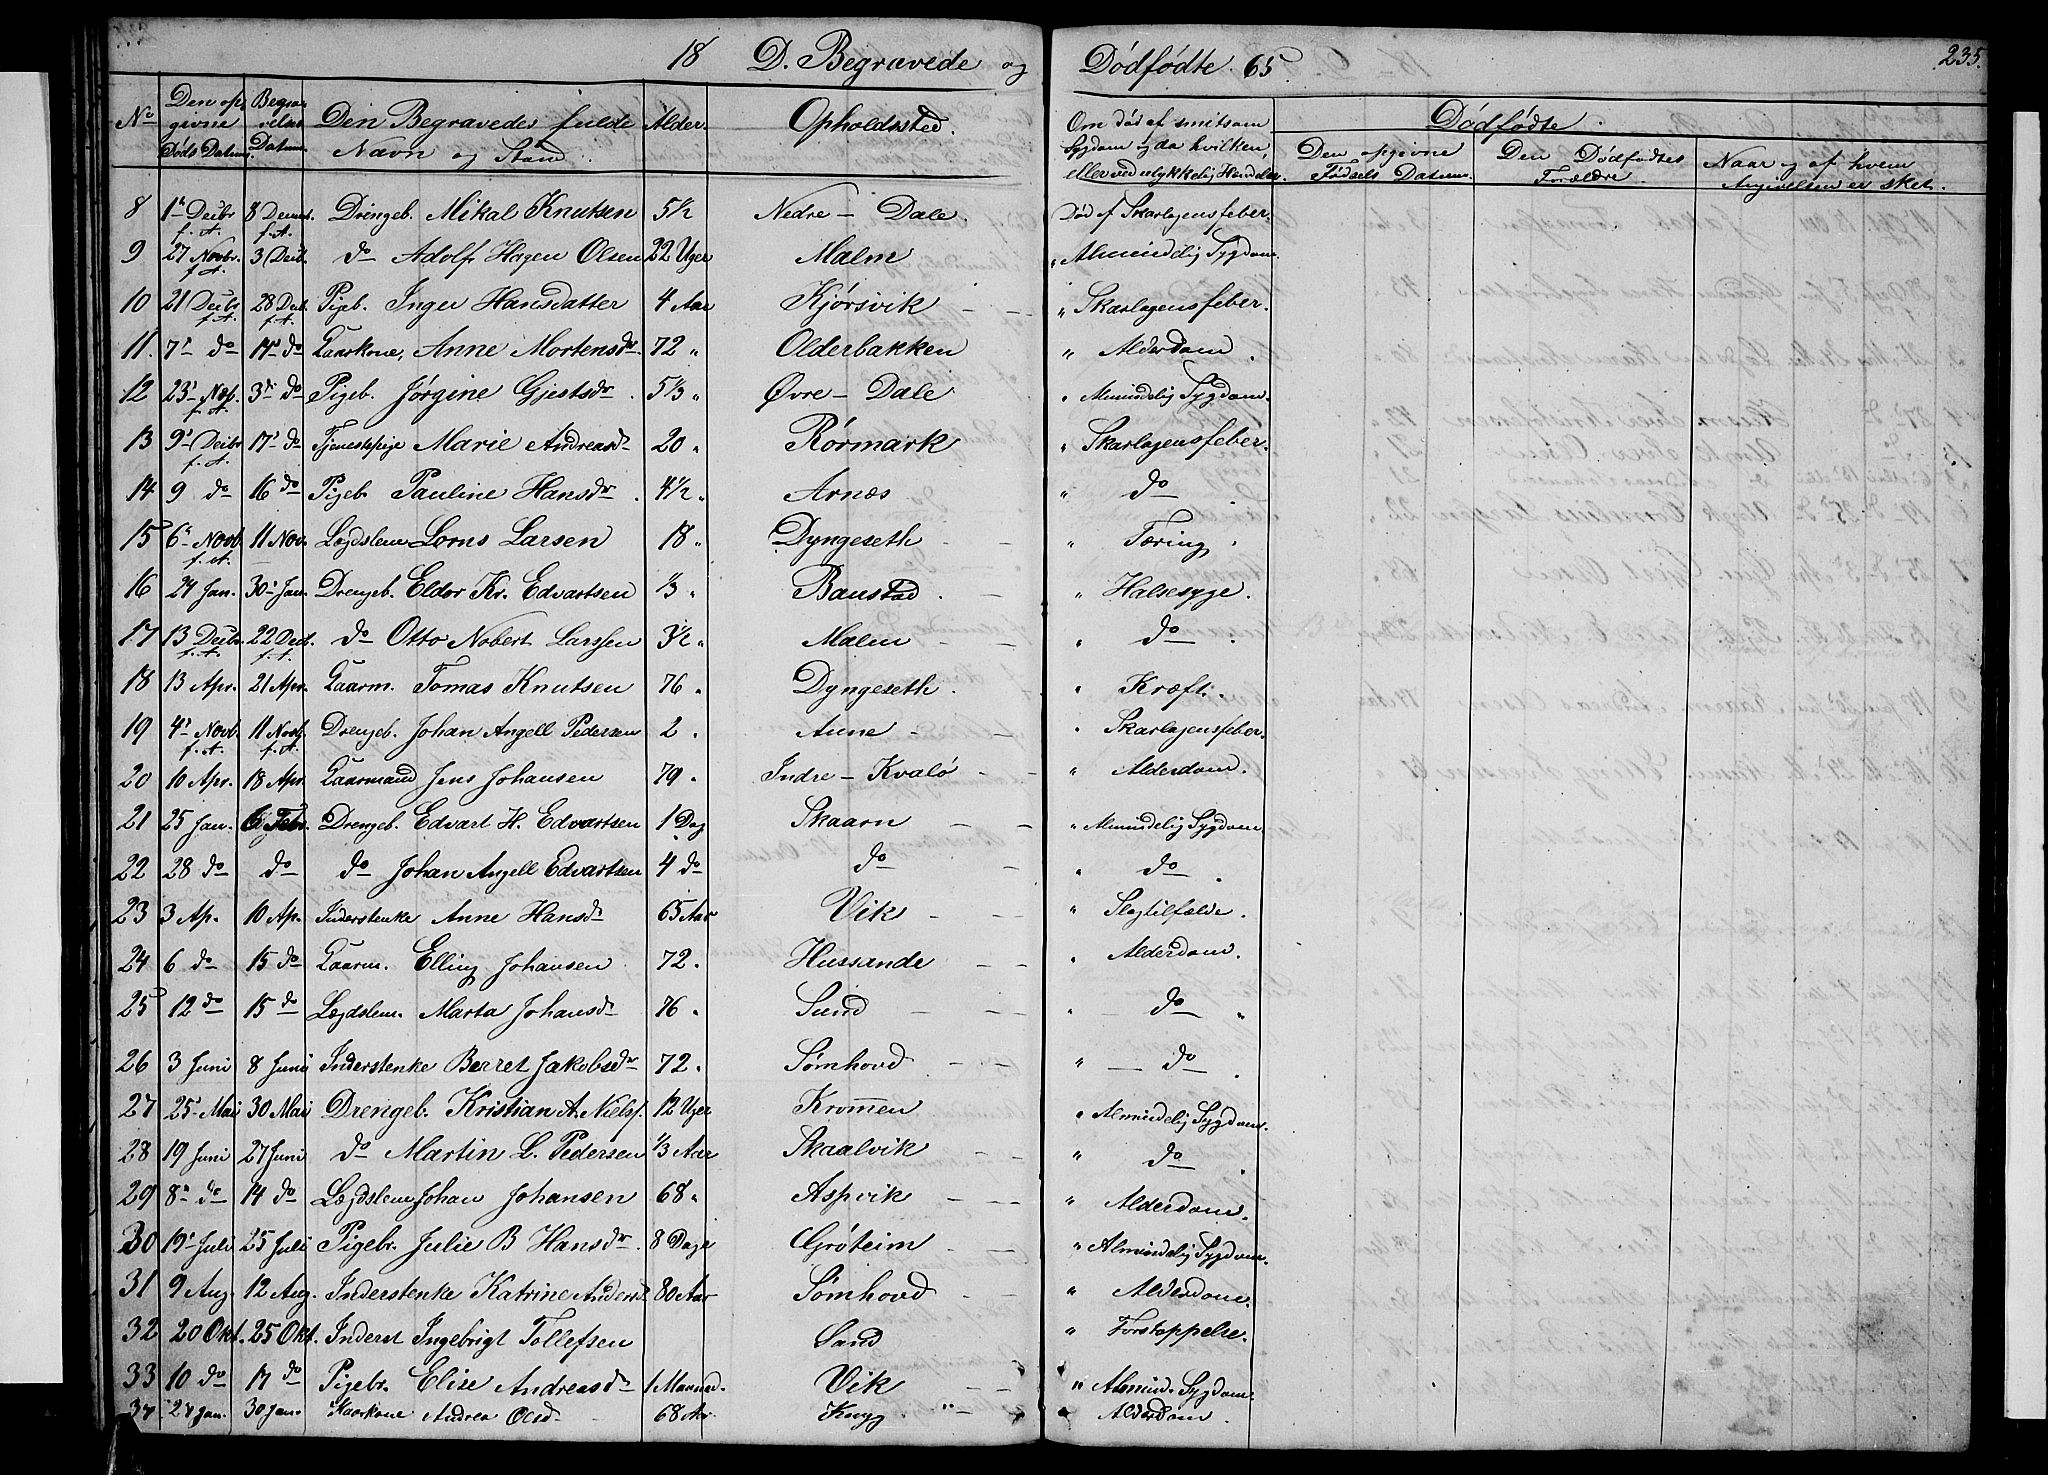 18 D. Begravede og Dødfødte 65. 235.
No Den opgivne Døds Datum. Begravelses Datum. Den Begravedes fulde Navn og Stand. Alder. Opholdssted. Om død af smitsom Sygdom og da hvilken, eller ved ulykkelig Hændelse. Dødfødte.
Den opgivne Fødsels Datum. Den Dødfødtes Forældre. Naar og af hvem Angivelsen er sket.
8 1 Decbr f. A. 8 f. A. Drengeb. Mikal Knutsen 5 1/2 Nedre - Dale. Død af Skarlagensfeber.
9 27 Novbr. f. A. 3 Decb. do Adolf Hagen Olsen 22 Uger Malm " Almindelig Sygdom.
10 21 Decbr f. A. 28 Decb. f. A. Pigeb. Inger Hansdatter 4 Aar Kjørsvik - - " Skarlagensfeber.
11. 7 do 14 do Gaarkone, Anne Mortensdr. 72 " Olderbakken " Alderdom.
12 23 Nov. f. A. 3 do Pigeb. Jørgine Gjertsdr. 5 1/3 " Øvre - Dale " Almindelig Sygdom.
13 9 Decbr f. A. 17 do Tjenestepige Marie Andreasdr 20 " Rörmark " Skarlagensfeber.
14 9 do 16 do Pigeb. Pauline Hansdr. 4 1/2 " Arnæs " do
15 6 Novb. f. A. 11 Nov. Lægdslem Larsen 18 " Dyngeseth - " Tæring.
16 24 Jan. 30 Jan. Drengeb. Eldor Kr. Edvartsen 1/3 " Baustad. - " Halsesyge.
17 13 Decbr. f. A. 22 Decb. f. A. do Otto Nobert Larssen 3 1/2 " Malm - - " do
18 13 Apr. 21 Apr. Gaarm. Tomas Knutsen 76 " Dyngeseth. - " Kræft.
19 4 Novb. f. A. 11 Novb. f. A. Drengeb. Johan Angell Pedersen 2 " Aune - - " Skarlagensfeber.
20 10 Apr. 18 Apr. Gaarmand Jens Johansen 79 " Indre - Kvalö - - " Alderdom.
21 25 Jan. Febr. Drengeb. Edvart H. Edvartsen 1 Dag Skaarn - - " Almindelig Sygdom.
22 28 do do do Johan Angell Edvartsen 4 do do - " do
23 3 Ap. 10 Ap. Inderstenke Anne Hansdr 65 Aar Vik - - " Slagtilfælde.
24 6 do 15 do Gaarm. Elling Johansen 72 " Hussande - - " Alderdom.
25 12 do 15 do Lægdslem. Marta Johansdr 76 " Sund - - - " do
26 3 Juni 8 Juni Inderstenke Berret Jakobsdr 72 " Sømhovd - - " do
27 25 Mai 30 Mai Drengeb. Kristian A. Niels. 12 Uger Krommen " Almindelig Sygdom.
28 19 Juni 27 Juni do Martin L. Pedersen 1/3 Aar Skaalvik - - " do
29 8 do 14 do Lægdslem Johan Johansen 68 " Aspvik - - " Alderdom.
30 19 Juli 25 Juli Pigebr. Julie B Hansdr. 8 Dage Grøteim - - " Almindelig Sygdom.
31 9 Aug. 12 Aug. Inderstenke Katrine 80 Aar Sømhovd - - " Alderdom.
32 20 Okt. 25 Okt. Inderst Ingebrigt Tollefsen Sand " Forstoppelse.
33 10 do 17 do Pigebr. Elise Andreasdr 1 Maaned. Vik - - " Almind. Sygdom.
34 24 Jan. 30 Jan. Gaarkone Andrea Olsdr 68 Aar " - Alderdom.